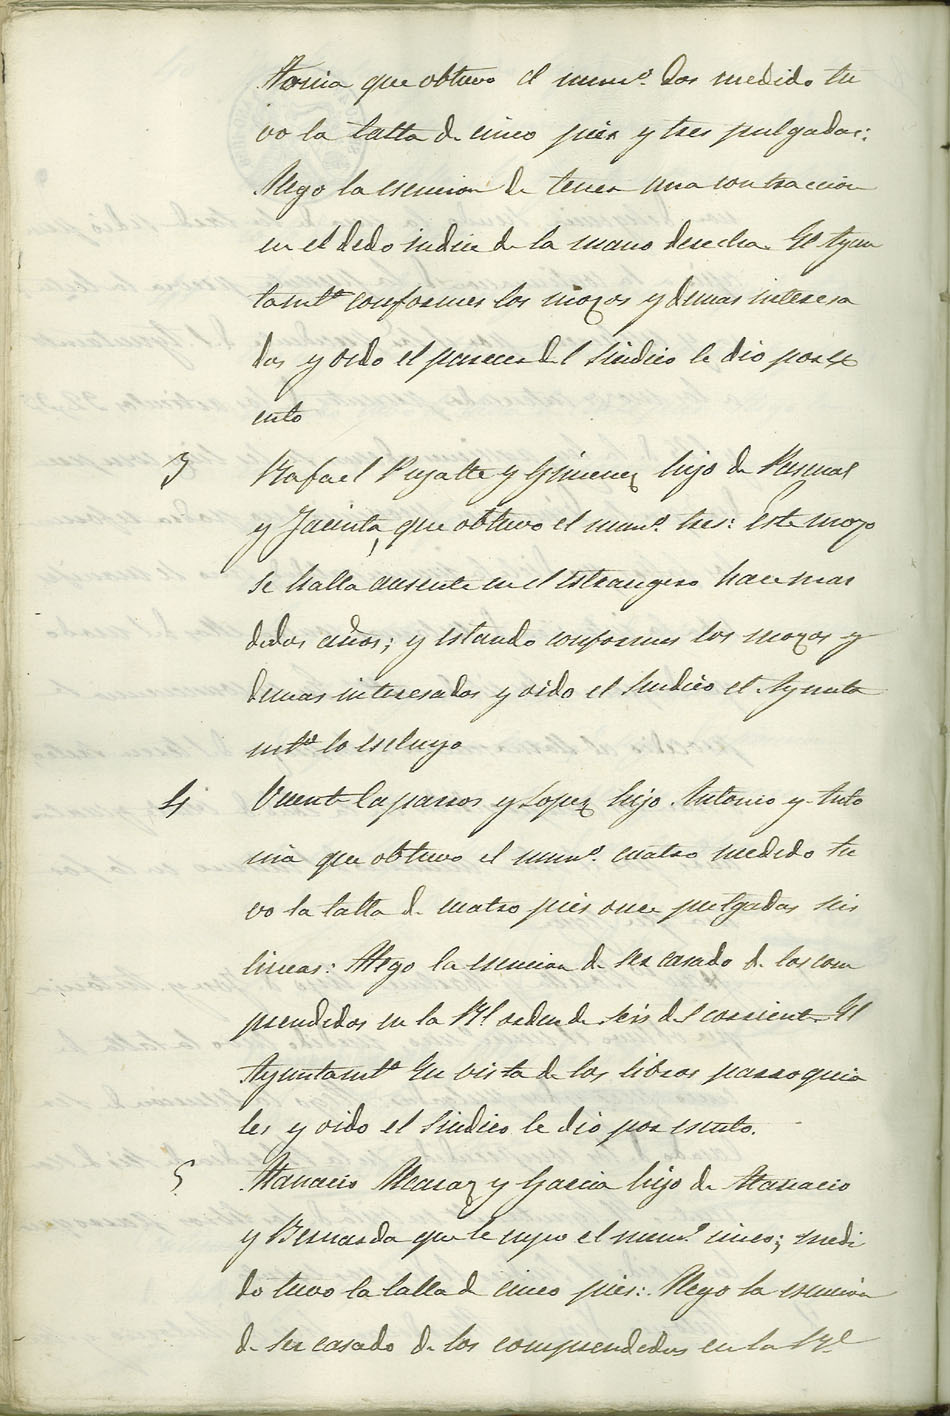 tonia que obtuvo el numº. dos medido tu
vo la talla de cinco pies y tres pulgadas:
Alego la esencion de tener una contraccion
en el dedo indice de la mano derecha. El Ayun
tamtº conformes los mozos y demas interesa
dos y oido el parecer del Sindico le dio por ex
ento
3 Rafael Pujalte y Gimenez hijo de Pascual
y Jacinta, que obtuvo el numº. tres: Este mozo
se halla ausente en el estrangero hace mas
de dos años; y estando conformes los mozos y
demas interesados y oido el Sindico el Ayunta
mtº lo escluyo
4 Vicente Caparros y Lopez hijo Antonio y Anto
nia que obtuvo el numº. cuatro medido tu
vo la talla de cuatro pies once pulgadas seis
lineas: Alego la esencion de ser casado de los com
prendidos en la Rl orden de seis del corriente. El
Ayuntamtº En vista de los libros parroquia
les y oido el Sindico le dio por esento.
5. Atanacio Alcaraz y Garcia hijo de Atanacio
y Bernarda que le cupo el numº cinco; medi
do tuvo la talla de cinco pies: Alego la esencion
de ser casado de los comprendidos en la Rl